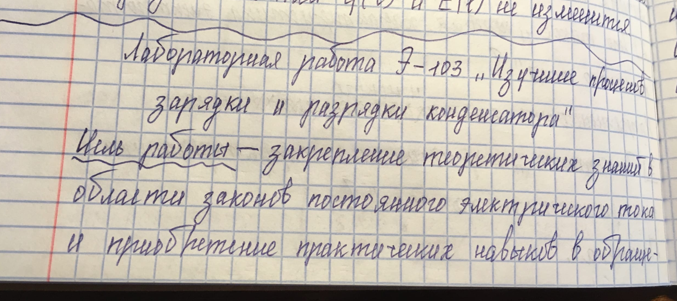 и E(r) не изменится
Лабораторная работа Э-103 „Изучение процессов
зарядки и разрядки конденсатора"
Цель работы – закрепление теоретических знаний в
области законов постоянного электрического тока
и приобретение практических навыков в обраще-